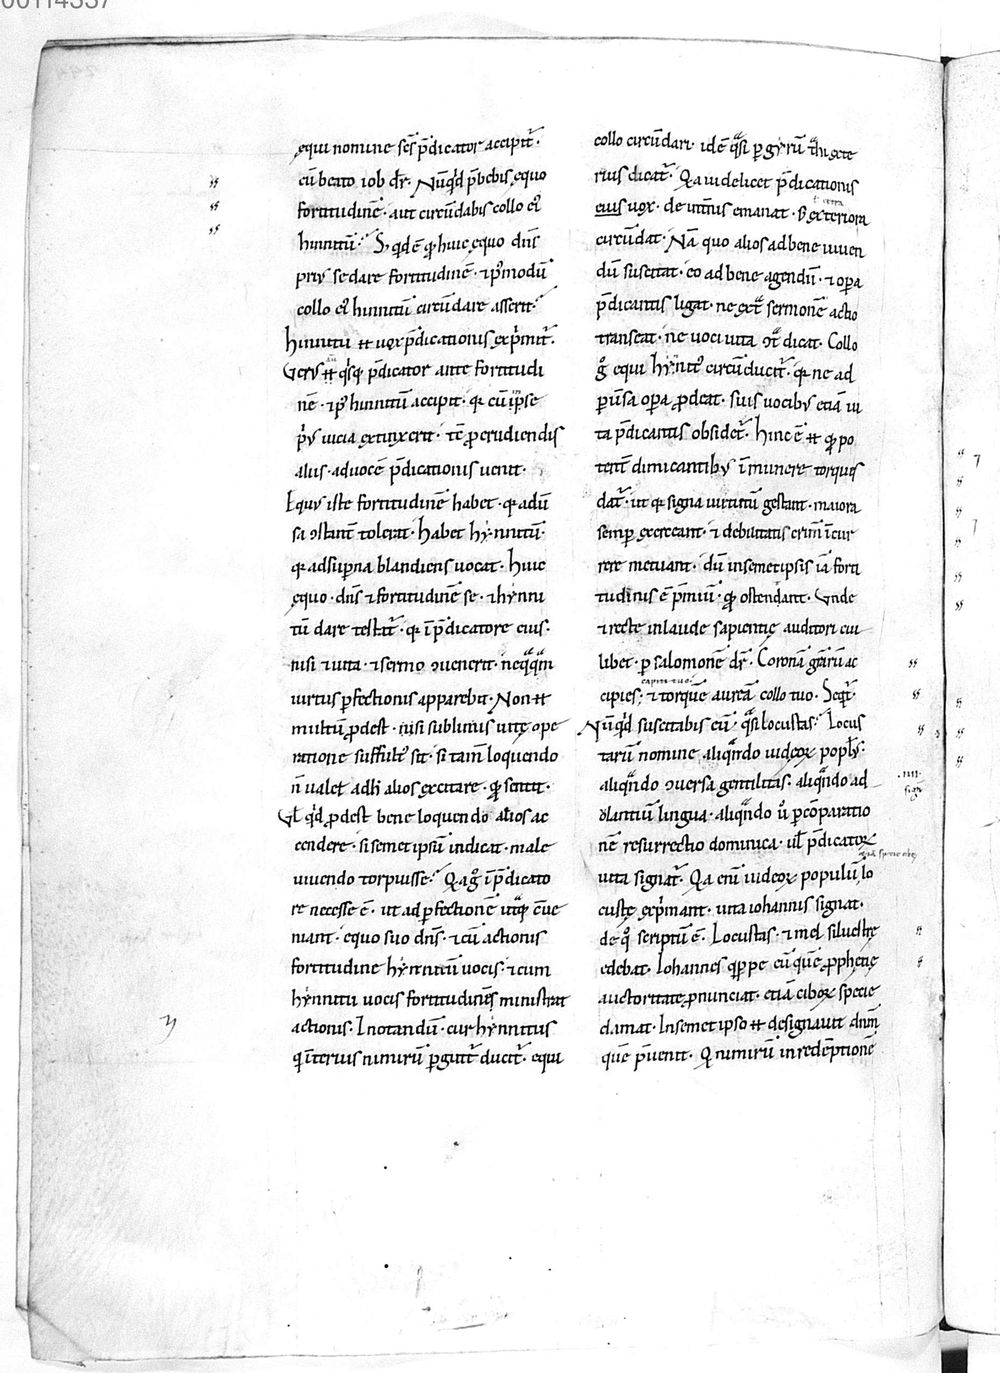 00114337
ęqui nomine sc̄s p̄dicator accipit̄·
cū beato iob dr̄· Nūqd̄ p̄bebis ęquo
fortitudinē· aut circūdabis collo ei᷒
hinnitū· S; qd̄ ē qđ huic ęquo dn̄s
prius se dare fortitudinē· ⁊ p᷒modū
collo ei᷒ hinnitū circūdare asserit·
hinnitū ᵻᵻ uox p̄dicationis exp̄mit̄·
Verus ᵻᵻ qsq; p̄dicator ante fortitudi
nē· ⁊ p᷒ hinnitū accipit· qr cū in se
p̄us uicia extinxerit· tc̄ ꝓ erudiendis
aliis· ad uocē p̄dicationis uenit·
Equus iste fortitudinē habet· qr adū
sa ɔstant̄ tolerat· habet hẏnnitū·
qr ad sup̄na blandiens uocat· huic
ęquo· dn̄s ⁊ fortitudinē se· ⁊ hẏnni
tū dare testat̄· qr ī p̄dicatore eius·
nisi ⁊ uita· ⁊ sermo ɔuenerit· neq̄q̄m
uirtus ꝑfectionis apparebit· Non ᵻᵻ
multū ꝓdest· nisi sublimis uitę ope
ratione suffult᷒ sit· si tam̄ loquendo
n̄ ualet adh̄ alios excitare· qđ sentit·
Vł qd̄ ꝓdest bene loquendo alios ac
cendere· si semet ipsū indicat· male
uiuendo torpuisse· Qa gͦ ī p̄dicato
re necesse ē· ut ad ꝑfectionē utq; ɔue
niant· equo suo dn̄s· ⁊ cū actionis
fortitudine hẏnnitū uocis· ⁊ cum
hẏnnitu uocis fortitudinē ministrat
actionis· Inotandū· cur hẏnnitus
q īterius nimirū ꝑ guttur̄ ducit̄· equi
collo circūdari· idē q̄si ꝑ gẏrū trahi exte
rius dicat̄· Qa uidelicet p̄dicationis
eius uox· de intimis emanat· s; exteriora
circūdat· Nā quo alios ad bene uiuen
dū suscitat· eo ad bene agendū· ⁊ opa
p̄dicantis ligat· ne ext̄ sermonē actio
transeat· ne uoci uita ɔt̄dicat· Collo
gͦ equi hẏnit᷒ circūducit̄· qr ne ad
ꝑūsa opa ꝓdeat· suis uocibus etiā ui
ta p̄dicantis obsidet̄· Hinc ē ᵻᵻ qđ po
tent̄ dimicantibus ī munere torques
dat̄· ut qr signa uirtutū gestant· maiora
semꝑ exerceant· ⁊ debilitatis crim̄ īcur
rere metuant· dū in semetipsis iā forti
tudinis ē p̄miū· qđ ostendant· Vnde
⁊ recte in laude sapientię auditori cui
libet· ꝑ salomonē dr̄· Coronā grārū ac
cipies capiti tuo; ⁊ torquē aureā collo tuo· Seqt̄·
Nūqd̄ suscitabis eū· q̄si locustas· Locus
tarū nomine aliqn̄do iudeoꝝ popł᷒s·
aliqn̄do ɔuersa gentilitas· aliqn̄do ad
ulantiū lingua· aliqn̄do ū ꝑ cōparatio
nē resurrectio dominica· uł p̄dicatoꝝ
uita signat̄· Qa eni iudeoꝝ populū lo
custę exp̄mant· uita iohannis signat·
de q͛ scriptū ē· Locustas· ⁊ mel siluestre
edebat· Iohannes q̄ppe eū quē ꝓphetię
auctoritate ꝓnunciat· etiā ciboꝝ specie
clamat· In semet ipso ᵻᵻ designauit dnm̄
quē p̄uenit· Q nimirū in redēptionē